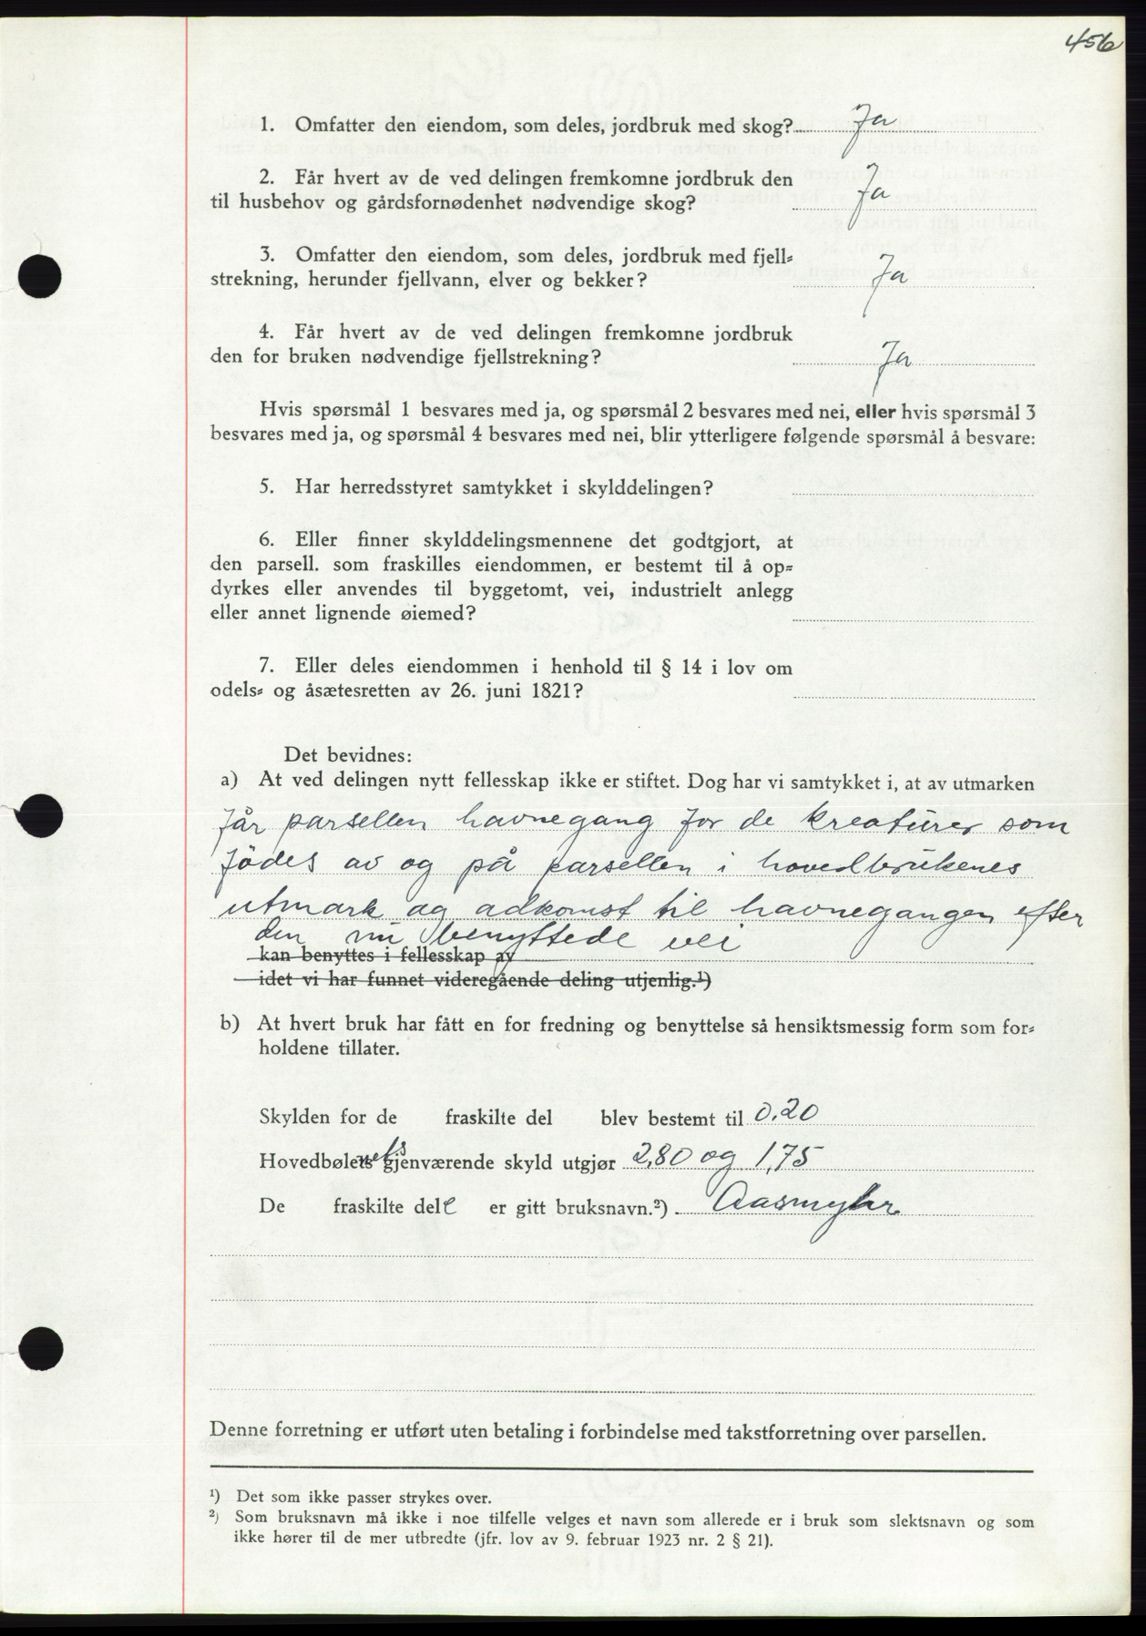 456
1. Omfatter den eiendom, som deles, jordbruk med skog? Ja
2. Får hvert av de ved delingen fremkomne jordbruk den
til husbehov og gårdsfornødenhet nødvendige skog? Ja
3. Omfatter den eiendom, som deles, jordbruk med fjell-
strekning, herunder fjellvann, elver og bekker? Ja
4. Får hvert av de ved delingen fremkomne jordbruk
den for bruken nødvendige fjellstrekning? Ja
Hvis spørsmål 1 besvares med ja, og spørsmål 2 besvares med nei, eller hvis spørsmål 3
besvares med ja, og spørsmål 4 besvares med nei, blir ytterligere følgende spørsmål å besvare:
5. Har herredsstyret samtykket i skylddelingen?
6. Eller finner skylddelingsmennene det godtgjort, at
den parsell. som fraskilles eiendommen, er bestemt til å op-
dyrkes eller anvendes til byggetomt, vei, industrielt anlegg
eller annet lignende øiemed?
7. Eller deles eiendommen i henhold til § 14 i lov om
odels- og åsætesretten av 26. juni 1821?
Det bevidnes:
a) At ved delingen nytt fellesskap ikke er stiftet. Dog har vi samtykket i, at av utmarken
får parsellen havnegang for de kreaturer som
födes av og på parsellen i hovedbrukenes
utmark og adkomst til havnegangen efter
den nu benyttede vei
kan benyttes i fellesskap av
idet vi har funnet videregående deling utjenlig.¹)
b) At hvert bruk har fått en for fredning og benyttelse så hensiktsmessig form som for-
holdene tillater.
Skylden for de fraskilte del blev bestemt til 0.20
Hovedbølets gjenværende skyld utgjør 2,80 og 1,75
De fraskilte dele er gitt bruksnavn.²) Aasmyhr
Denne forretning er utført uten betaling i forbindelse med takstforretning over parsellen.
¹) Det som ikke passer strykes over.
²) Som bruksnavn må ikke i noe tilfelle velges et navn som allerede er i bruk som slektsnavn og som
ikke hører til de mer utbredte (jfr. lov av 9. februar 1923 nr. 2 § 21).